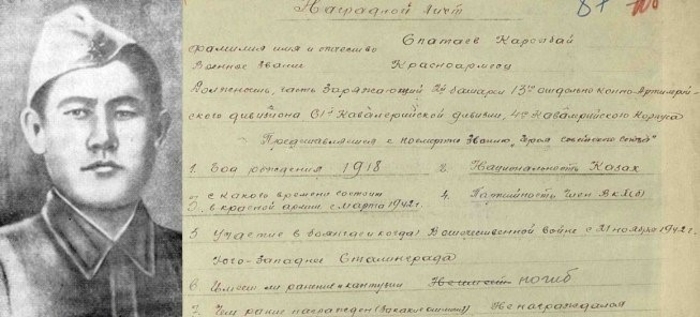 Наградной лист
87
Фамилия имя и отчество Спатаев Карсыбай
Военное звание Красноармеец
Должность, часть Заряжающий 2й батареи 13го отдельно конно-Артиллерий-
ского дивизиона 61й Кавалерийской дивизии, 4го Кавалерийского Корпуса
Представляется к посмертно Званию "Героя Советского Союза"
1. Год рождения 1918 2. Национальность Казах
3. с какого времени состоит в красной армии с марта 1942 г. 4. Партийность Член ВкП(б)
5. Участие в боях (где и когда) В отечественной войне с 21 ноября 1942 г.
Юго-Западнее Сталинграда
6. Имеет ли ранение и контузии погиб
7. Чем ранее награжден Не награждался